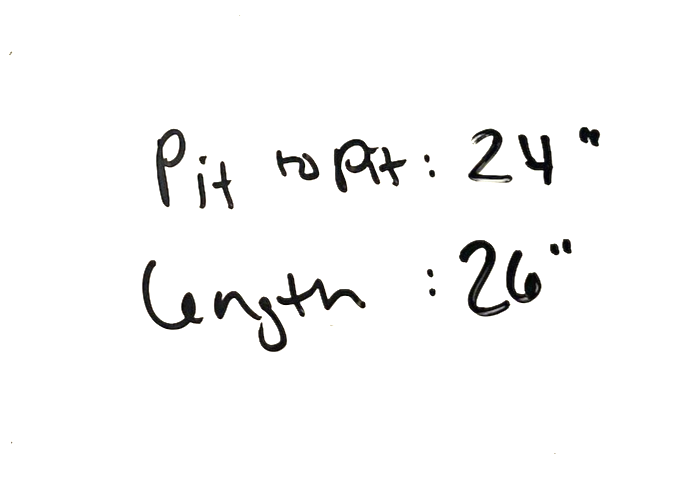 Pit to Pit: 24"
length : 26"